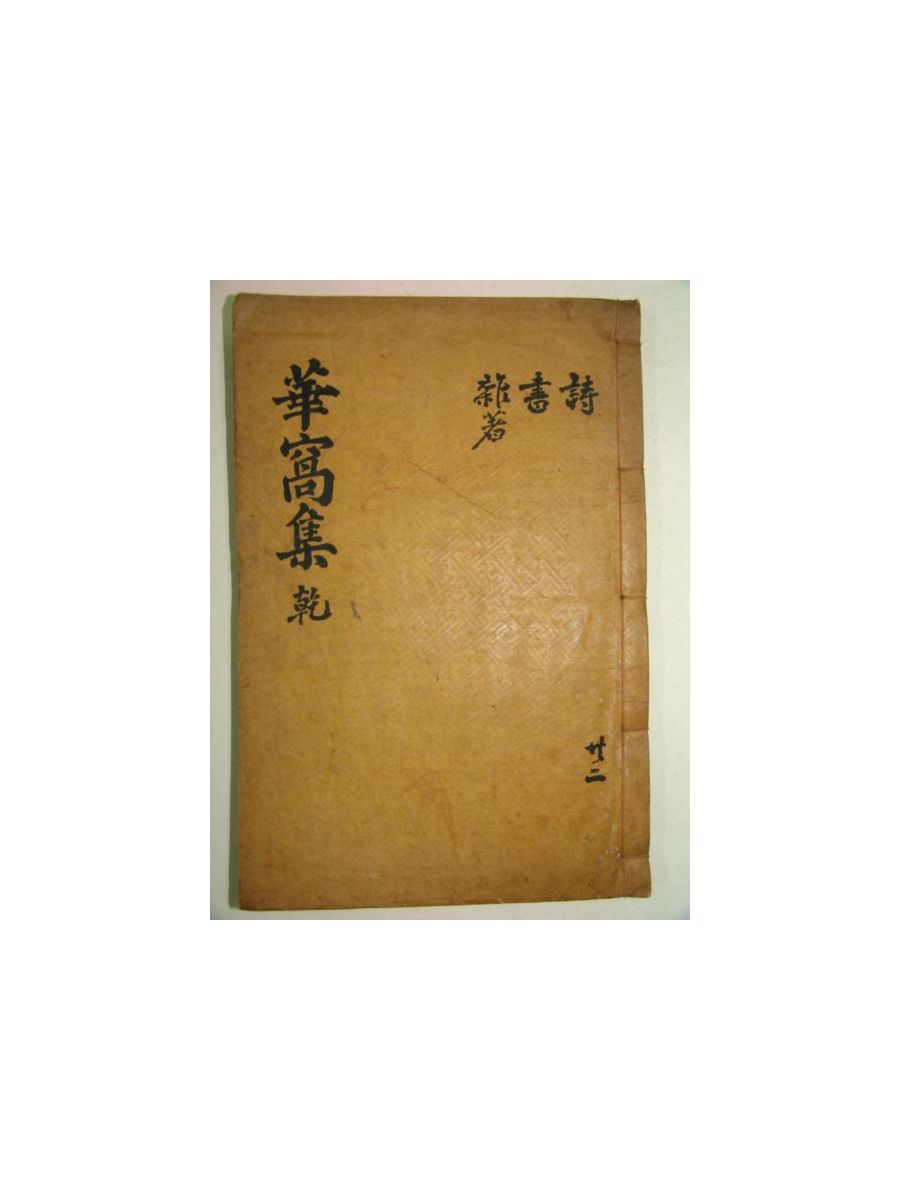 詩
書
雜著
華窩集 乾
共二